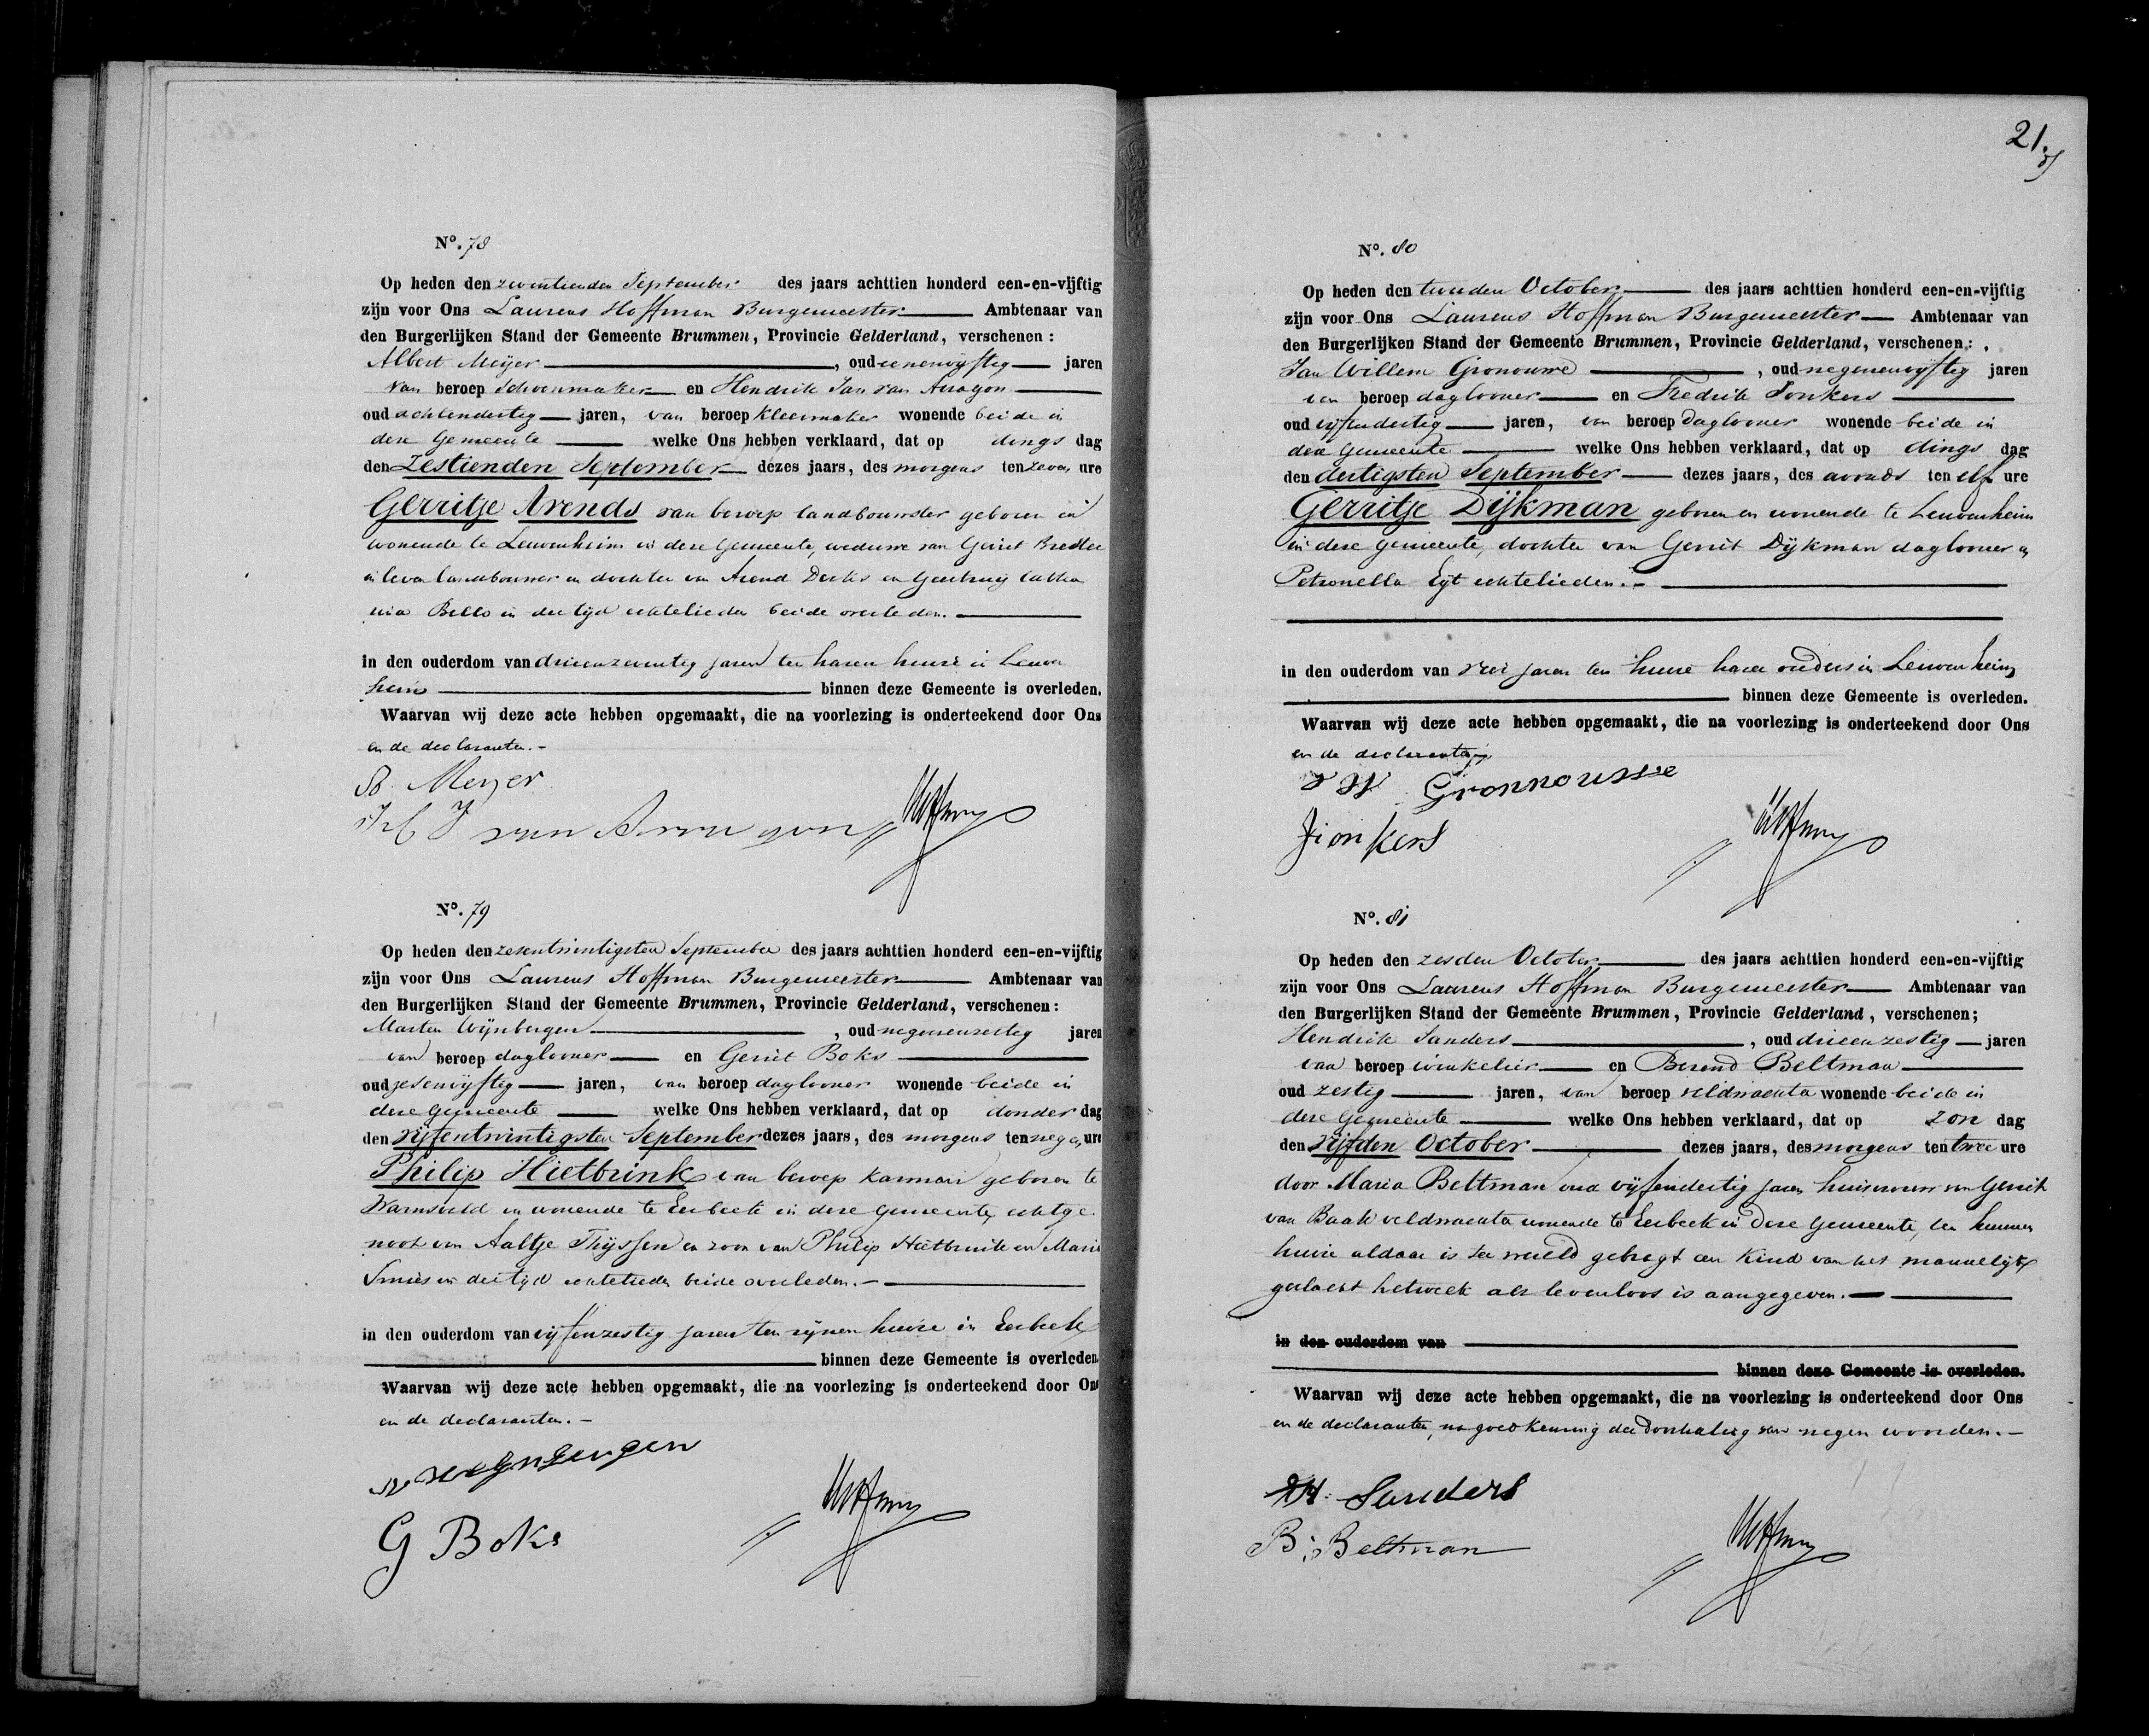 No. 78
Op heden den zeventienden September des jaars achttien honderd een-en-vijftig
zijn voor Ons Laurens Hoffman Burgemeester Ambtenaar van
den Burgerlijken Stand der Gemeente Brummen, Provincie Gelderland, verschenen:
Albert Meijer, oud eenenvijftig jaren
van beroep Schoenmaker en Hendrik Jan van Arragon
oud achtendertig jaren, van beroep kleermaker wonende beide in
deze Gemeente welke Ons hebben verklaard, dat op dings dag
den Zestienden September dezes jaars, des morgens ten zeven ure
Gerritje Arends van beroep landbouwster geboren en
wonende te Leuvenheim in deze Gemeente, weduwe van Gerrit Bredler
in leven landbouwer en dochter van Arend Derks en Geertruij Catha
rina Bello in der tijd echtelieden beide overleden.
in den ouderdom van drieenzeventig jaren ten haren huize in Leuven
heim binnen deze Gemeente is overleden.
Waarvan wij deze acte hebben opgemaakt, die na voorlezing is onderteekend door Ons
en de declaranten.
Meyer
H J van Arragon
No. 79
Op heden den zesentwintigsten September des jaars achttien honderd een-en-vijftig
zijn voor Ons Laurens Hoffman Burgemeester Ambtenaar van
den Burgerlijken Stand der Gemeente Brummen, Provincie Gelderland, verschenen:
Marten Wijnbergen, oud negenenzestig jaren
van beroep daglooner en Gerrit Boks
oud zesenvijftig jaren, van beroep daglooner wonende beide in
deze Gemeente welke Ons hebben verklaard, dat op donder dag
den vijfentwintigsten September dezes jaars, des morgens ten negen ure
Philip Hietbrink van beroep karman geboren te
Warnsveld en wonende te Eerbeek in deze Gemeente, echtge
noot van Aaltje Thijssen en zoon van Philip Hietbrink en Maria
Smies in der tijd echtelieden beide overleden.
in den ouderdom van vijfenzestig jaren ten zijnen huize in Eerbeek
binnen deze Gemeente is overleden.
Waarvan wij deze acte hebben opgemaakt, die na voorlezing is onderteekend door Ons
en de declaranten.
Wijnbergen
G Boks
21
No. 80
Op heden den tweeden October des jaars achttien honderd een-en-vijftig
zijn voor Ons Laurens Hoffman Burgemeester Ambtenaar van
den Burgerlijken Stand der Gemeente Brummen, Provincie Gelderland, verschenen:
Jan Willem Gronouwe, oud negenenvijftig jaren
van beroep daglooner en Fredrik Jonkers
oud vijfendertig jaren, van beroep daglooner wonende beide in
deze Gemeente welke Ons hebben verklaard, dat op dings dag
den dertigsten September dezes jaars, des avonds ten elf ure
Gerritje Dijkman geboren en wonende te Leuvenheim
in deze Gemeente, dochter van Gerrit Dijkman daglooner en
Petronella Eijt echtelieden.
in den ouderdom van vier jaren ten huize harer ouders in Leuvenheim
binnen deze Gemeente is overleden.
Waarvan wij deze acte hebben opgemaakt, die na voorlezing is onderteekend door Ons
en de declaranten.
J W Gronnousse
Jionkers
No. 81
Op heden den zesden October des jaars achttien honderd een-en-vijftig
zijn voor Ons Laurens Hoffman Burgemeester Ambtenaar van
den Burgerlijken Stand der Gemeente Brummen, Provincie Gelderland, verschenen;
Hendrik Sanders, oud drieenzestig jaren
van beroep winkelier en Berend Beltman
oud zestig jaren, van beroep veldwachter wonende beide in
deze Gemeente welke Ons hebben verklaard, dat op zon dag
den vijfden October dezes jaars, des morgens ten twee ure
door Maria Beltman oud vijfendertig jaren huisvrouw van Gerrit
van Baak veldwachter wonende te Eerbeek in deze Gemeente, ten hunnen
huize aldaar is ter wereld gebragt een kind van het mannelijk
geslacht hetwelk als levenloos is aangegeven.
in den ouderdom van
binnen deze Gemeente is overleden.
Waarvan wij deze acte hebben opgemaakt, die na voorlezing is onderteekend door Ons
en de declaranten, na goedkeuring der doorhaling van negen woorden.
H: Sanders
B: Beltman